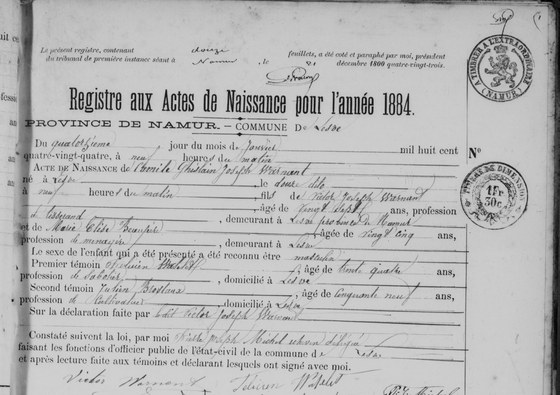 Le présent registre, contenant douze feuillets, a été coté et paraphé par moi, président
du tribunal de première instance séant à Namur, le 21 décembre 1800 quatre-vingt-trois.
TIMBRE A L'EXTRAORDINAIRE
(NAMUR)
Registre aux Actes de Naissance pour l'année 1884.
PROVINCE DE NAMUR. — COMMUNE De Lesve
Du quatorzième jour du mois de Janvier mil huit cent
quatre-vingt-quatre, à neuf heures du matin
No
ACTE DE NAISSANCE de Ghislain Joseph Warnant
né à Lesve, le douze dito
à neuf heures du matin, fils de Victor Joseph Warnant
, âgé de vingt sept ans, profession
de , demeurant à Lesve province de Namur
TIMBRE DE DIMENSION
1fr
30c
et de Marie Elise , âgée de vingt cinq ans,
profession de ménagère, demeurant à Lesve
Le sexe de l'enfant qui a été présenté a été reconnu être masculin
Premier témoin , âgé de trente quatre ans,
profession de , domicilié à Lesve
Second témoin Julien , âgé de cinquante neuf ans,
profession de Cultivateur, domicilié à Lesve
Sur la déclaration faite par Victor Joseph Warnant
Constaté suivant la loi, par moi Joseph Michel
faisant les fonctions d'officier public de l'état-civil de la commune de Lesve
et après lecture faite aux témoins et déclarant lesquels ont signé avec moi.
Victor Warnant